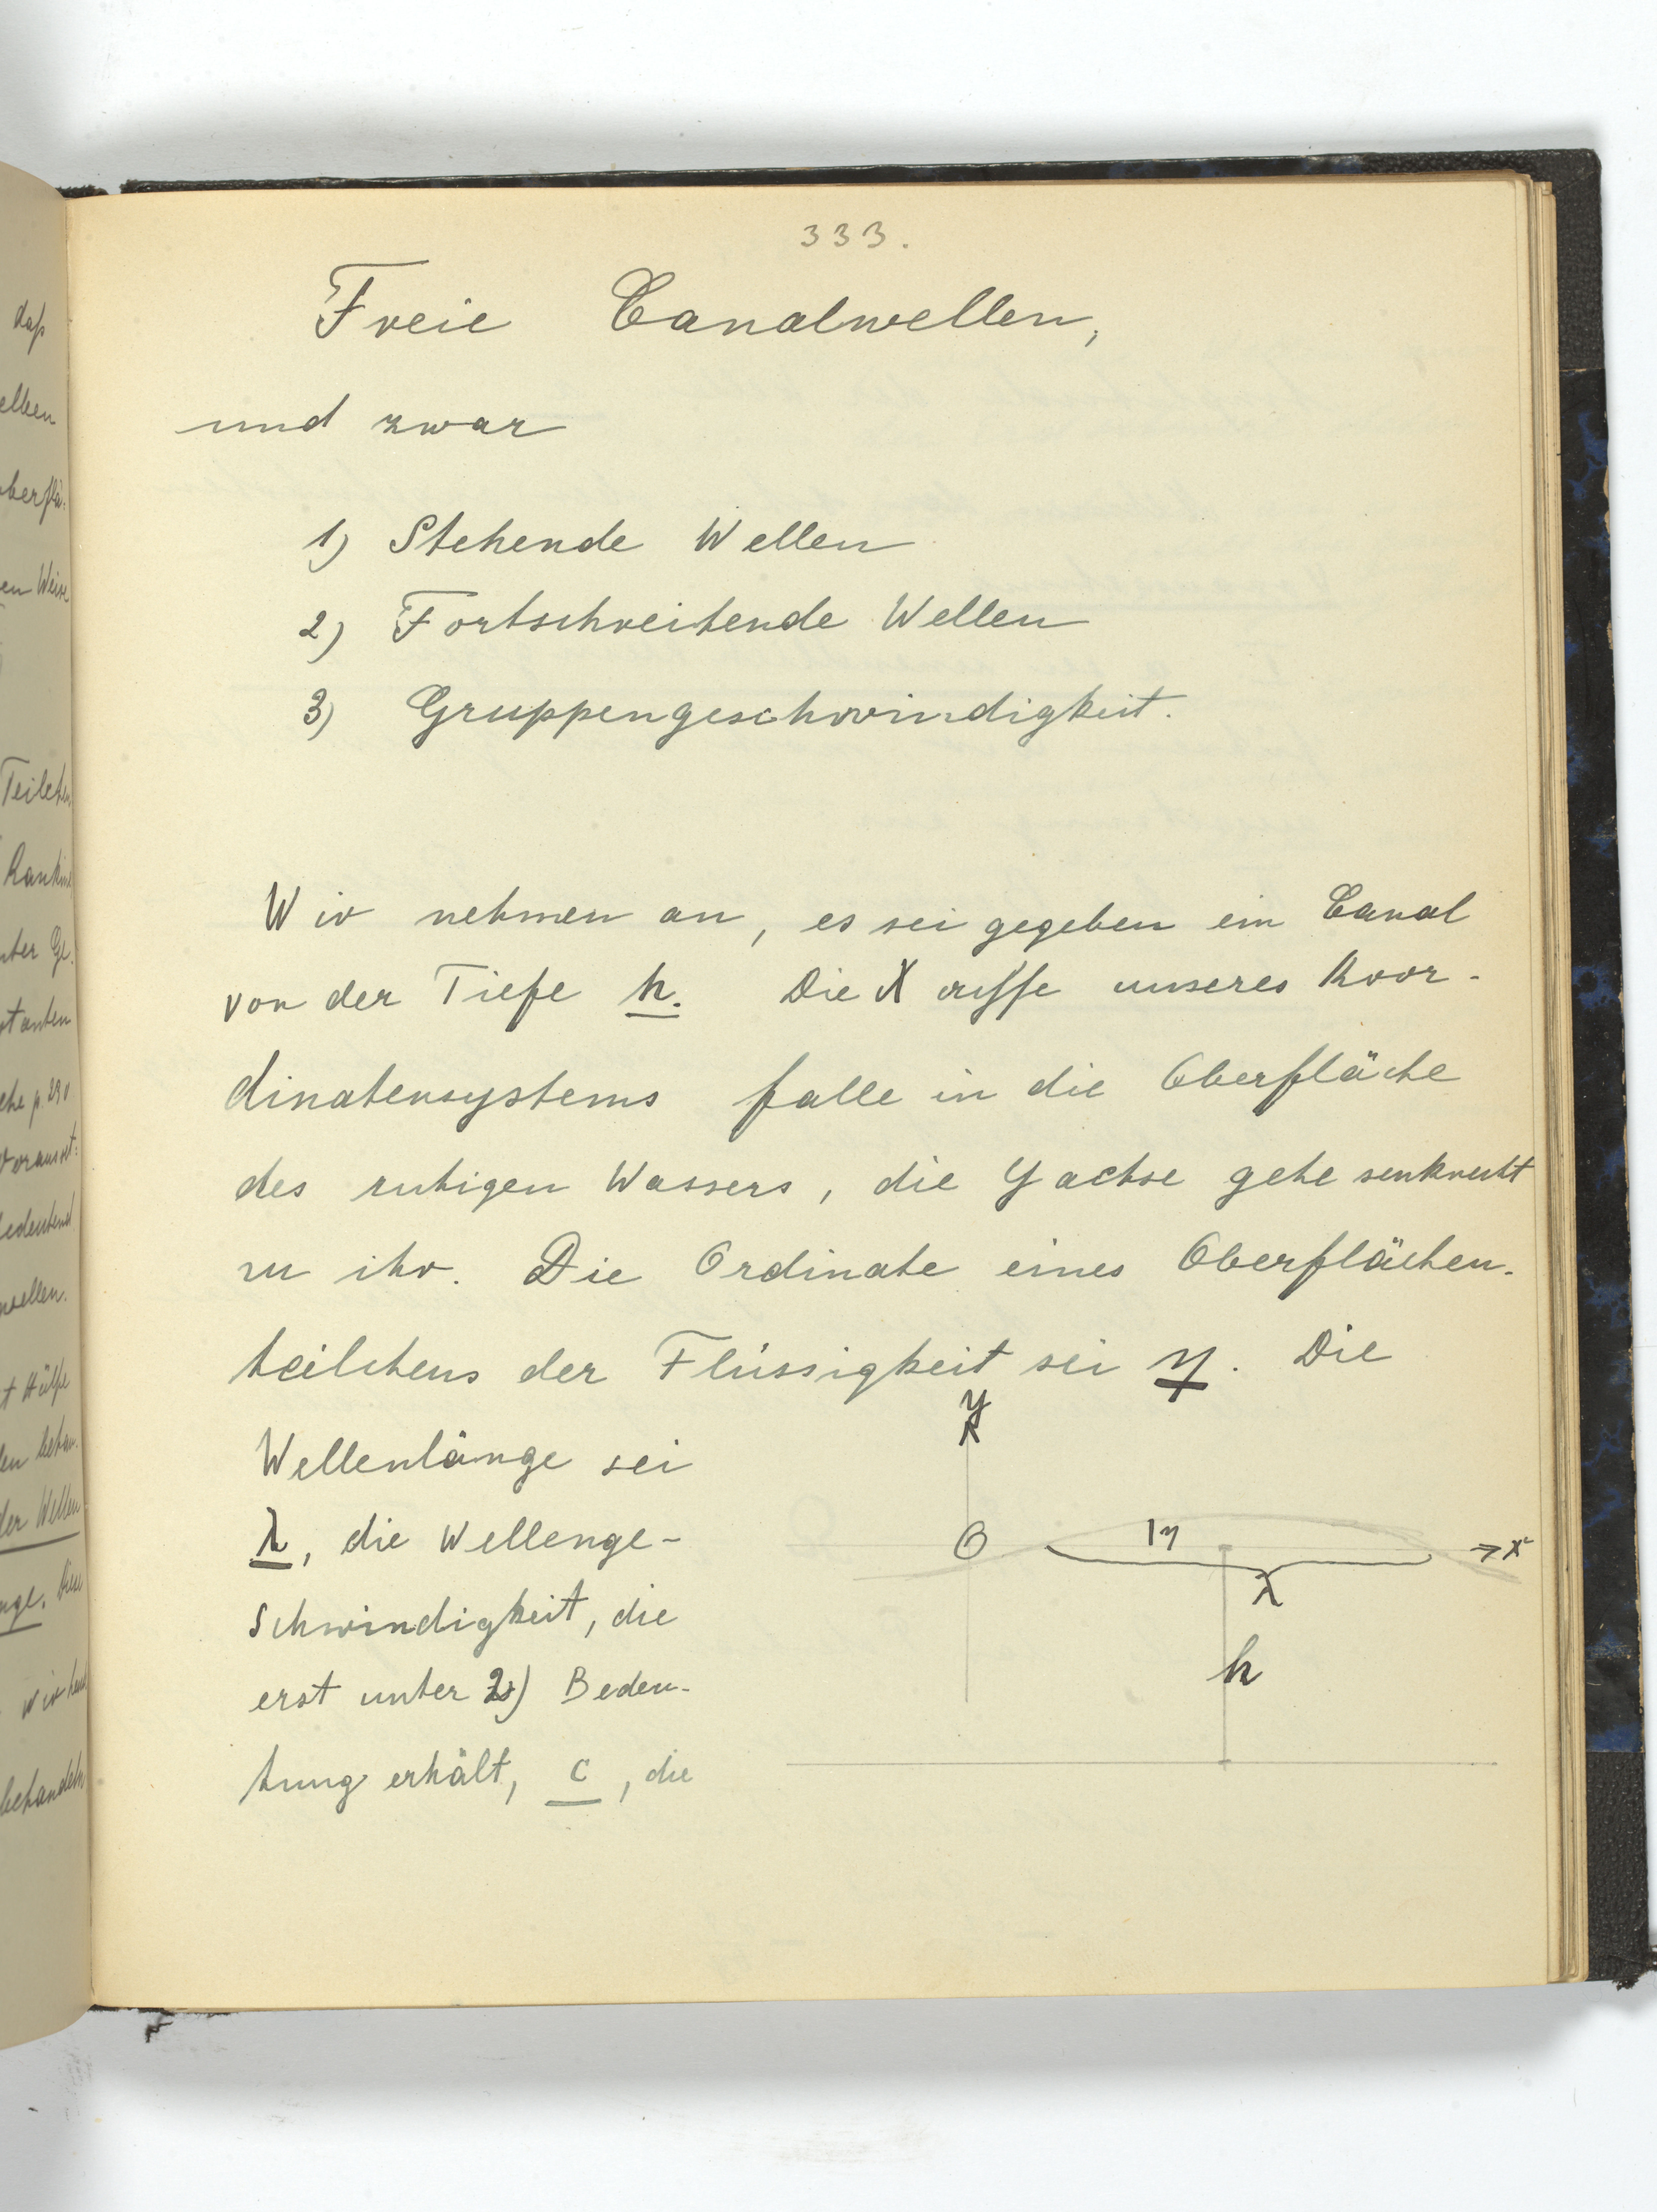 333.
Freie Canalwellen,
und zwar
1) Stehende Wellen
2) Fortschreitende Wellen
3) Gruppengeschwindigkeit.
Wir nehmen an, es sei gegeben ein Canal
von der Tiefe h. Die X unseres Koor-
dinatensystems falle in die Oberfläche
des ruhigen Wassers, die y achse gehe senkrecht
zu ihr. Die Ordinate eines Oberflächen-
teilchens der Flüssigkeit sei η. Die
Wellenlänge sei
λ, die Wellenge-
schwindigkeit, die
erst unter 2) Bedeu-
tung erhält, c, die
y
O
η
x
λ
h
daß
elben
berflä-
en Weise
Teilchen
Rankine
nter Ge-
stanten
ehe p. 290
Voraus
bedeutend
wellen.
t Hülfe
len behan-
der Wellen
nge. Diese
behandeln